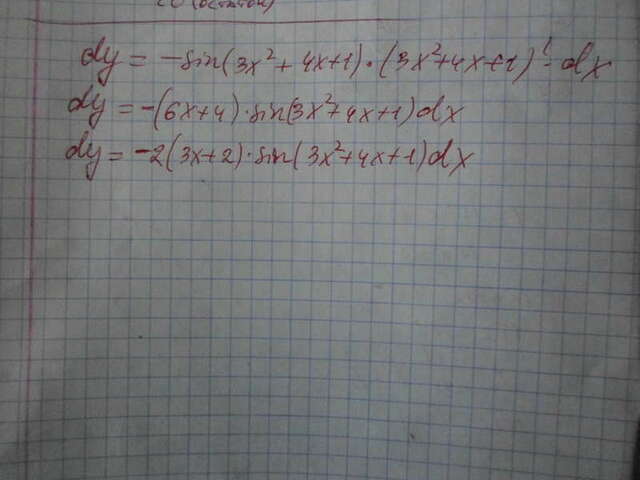 (остаток)
dy = -sin(3x²+4x+1)·(3x²+4x+1)'·dx
dy = -(6x+4)·sin(3x²+4x+1)dx
dy = -2(3x+2)·sin(3x²+4x+1)dx